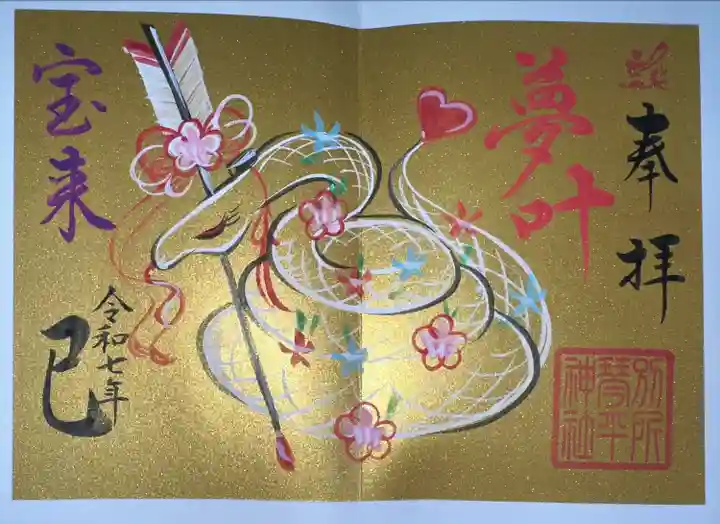 奉拝
夢叶
宝来
令和七年
巳
別所
琴平
神社